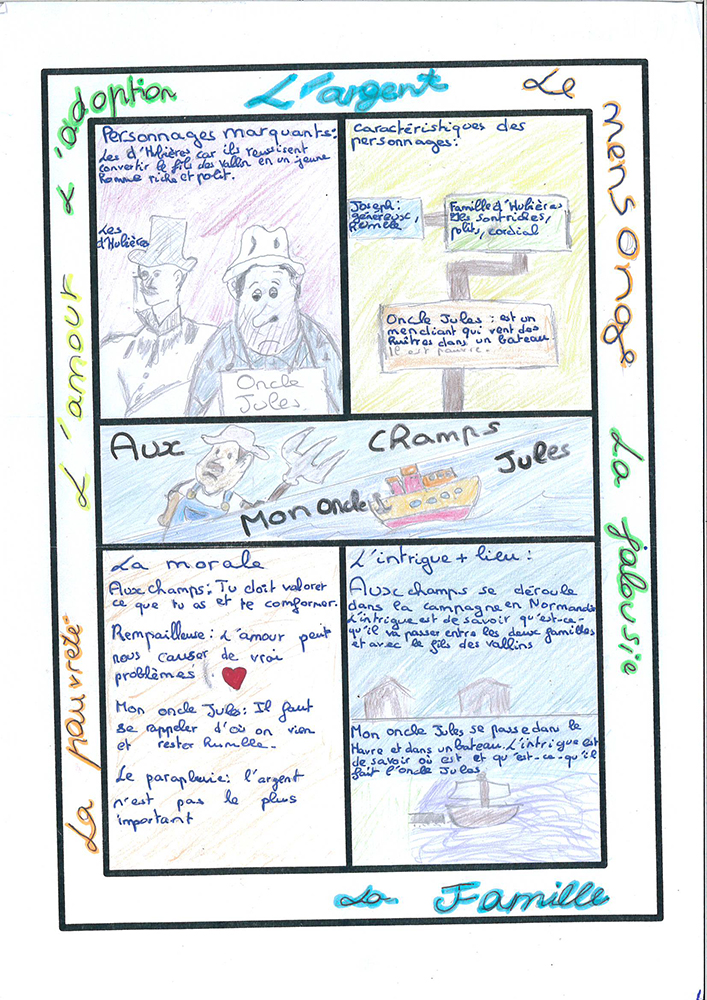 L'adoption
L'argent
Le mensonge
L'amour
La jalousie
La pauvreté
La Famille
Personnages marquants:
Les d'Hulières car ils reussissent
convertir le fils des Vallin en un jeune
homme riche et polit.
Les
d'Hulières
Oncle
Jules
caractéristiques des
personnages:
Joseph:
généreux,
humble
Famille d'Hulières
Ils sont riches,
polits, cordial
Oncle Jules : est un
mendiant qui vent des
huîtres dans un bateau
Il est pauvre.
Aux champs
Mon oncle Jules
La morale
Aux champs: Tu doit valorer
ce que tu as et te comformer.
Rempailleuse: L'amour peut
nous causer de vrai
problèmes
Mon oncle Jules: Il faut
se rappeler d'où on vien
et rester humble.
Le parapluie: l'argent
n'est pas le plus
important
L'intrigue + lieu:
Aux champs se déroule
dans la campagne en Normandie
L'intrigue est de savoir qu'est-ce-
qu'il va passer entre les deux familles
et avec le fils des vallins
Mon oncle Jules se passe dans le
Havre et dans un bateau. L'intrigue est
de savoir où est et qu'est-ce-qu'il
fait l'oncle Jules